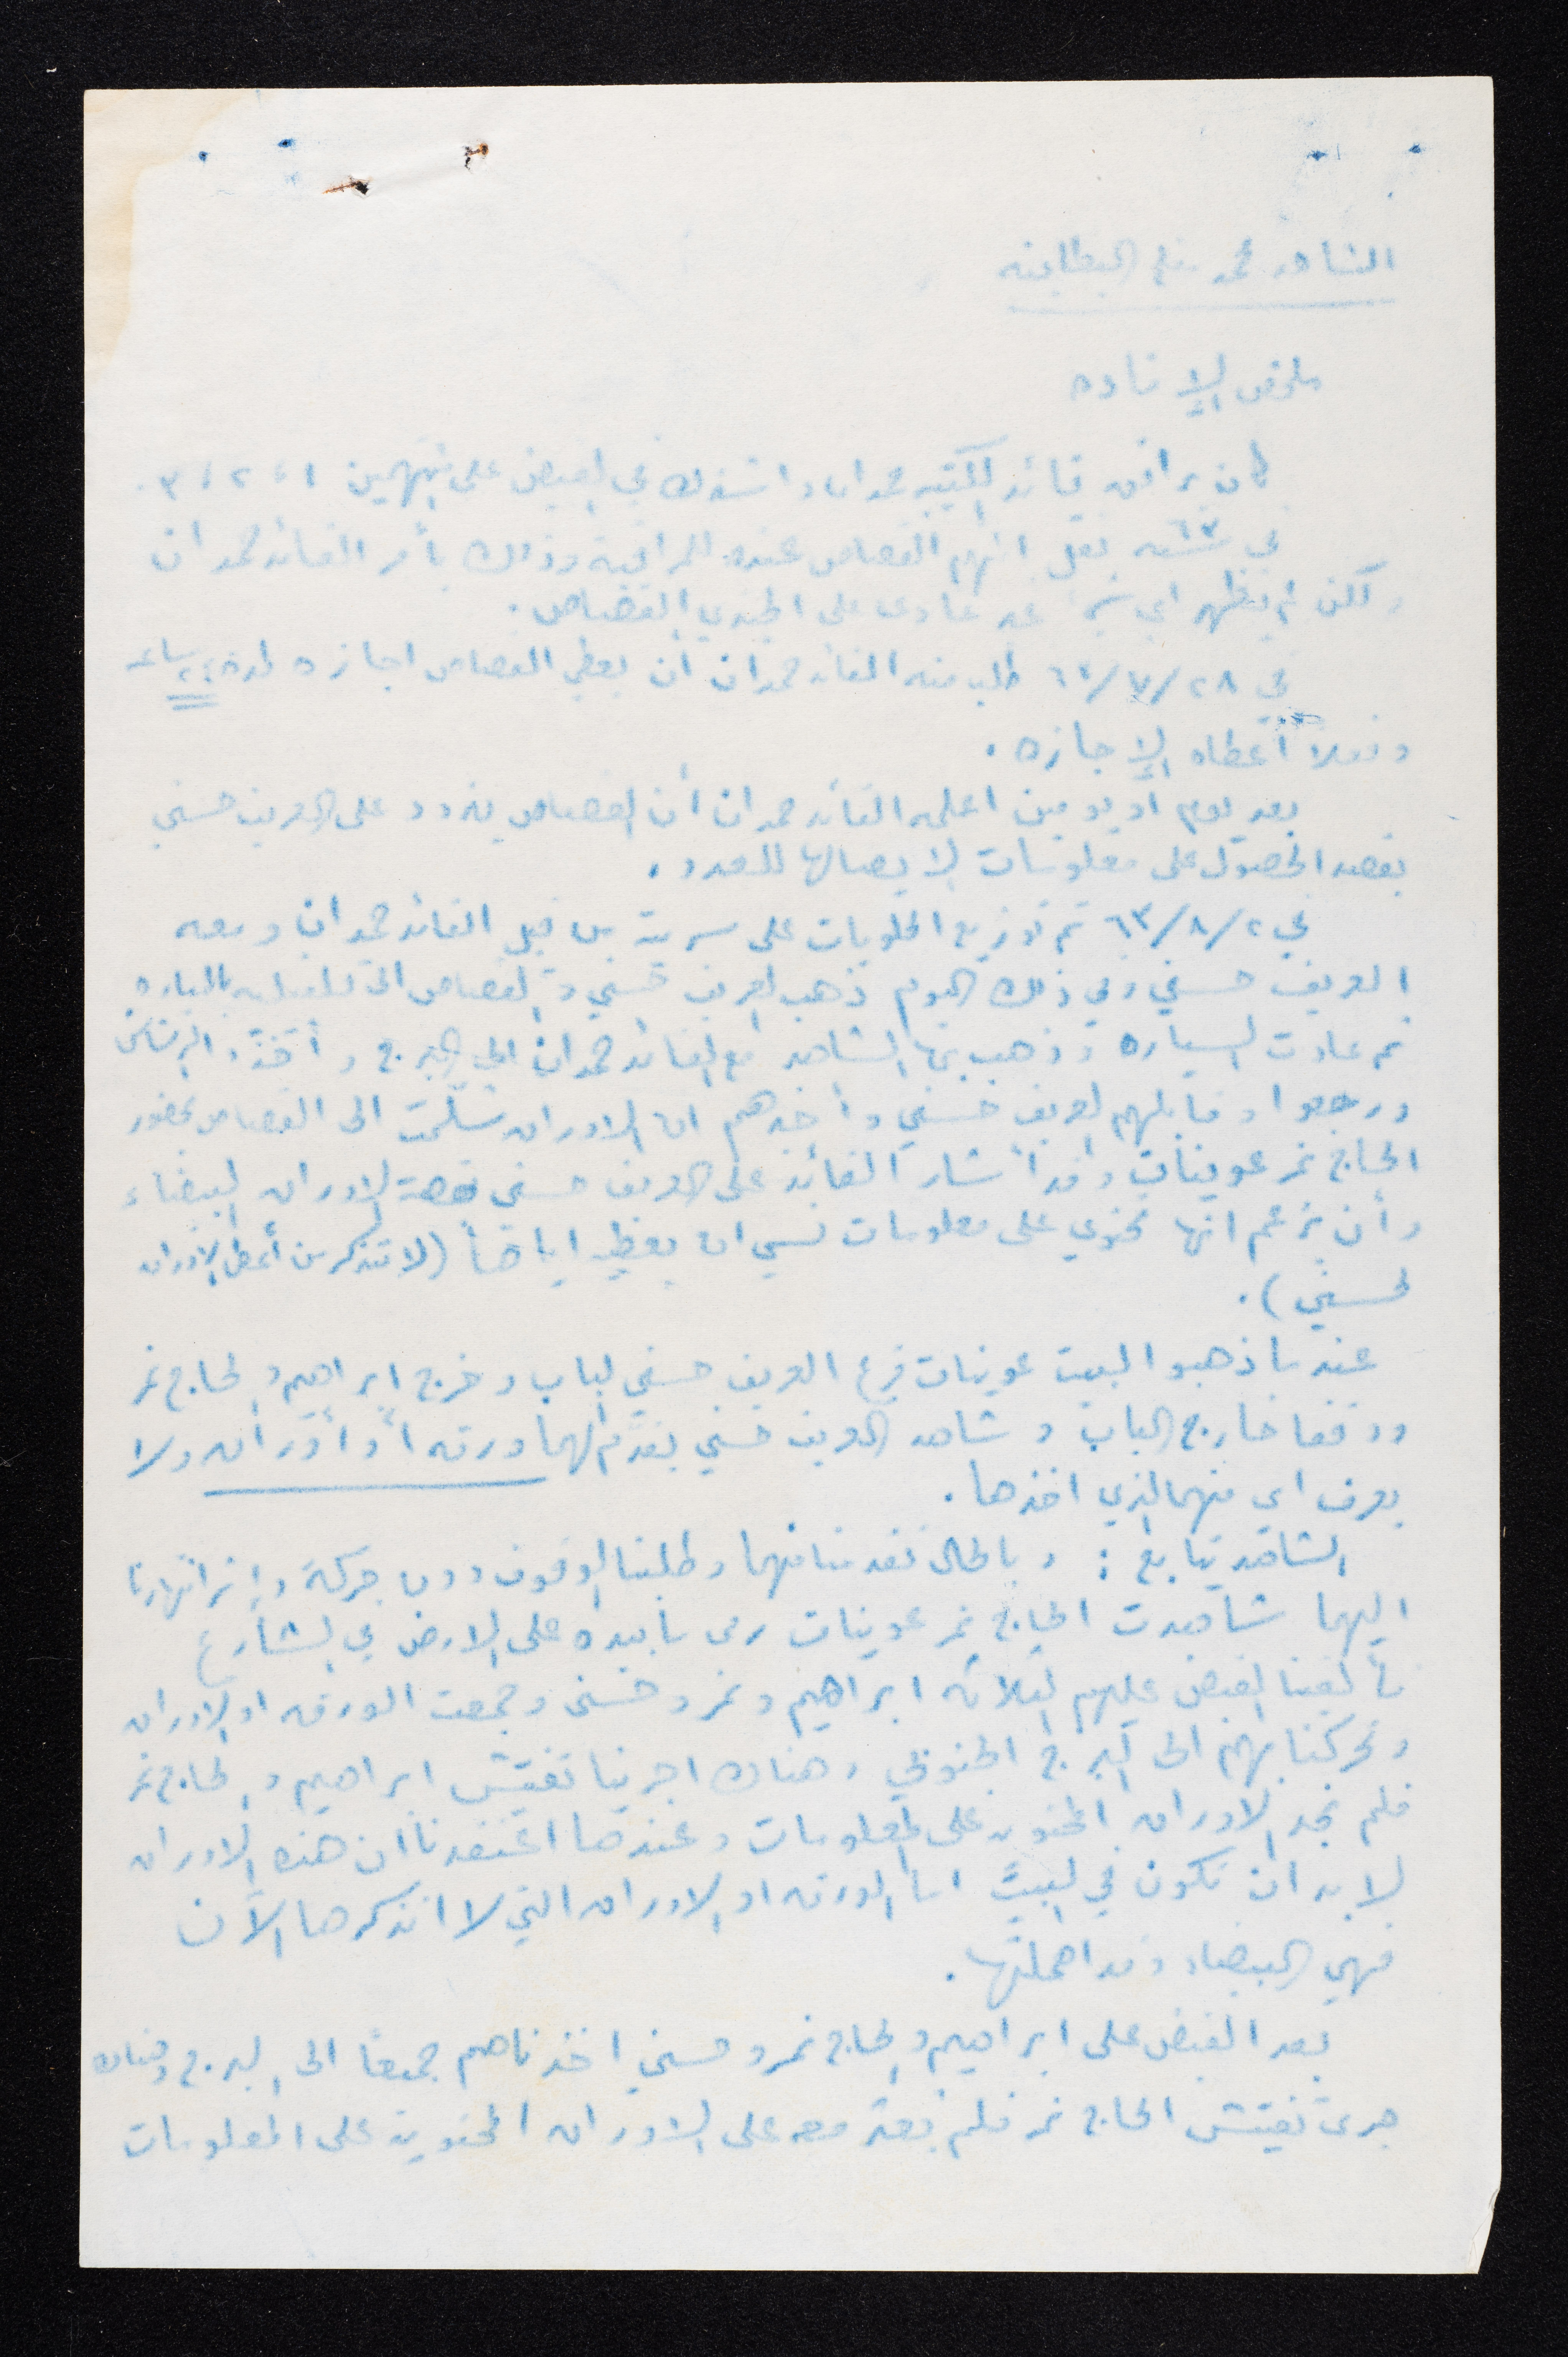 الشاهد محمد علي البطاينه
ملخص الإفاده
كان يرافق قائد الكتيبه حمدان واشترك في القبض على المتهمين ١، ٢، ٣.
في سنة ٦٣ نقل المتهم القصاص عنده للمراقبة وذلك بأمر القائد حمدان
ولكن لم يظهر اي شيء غير عادي على الجندي القصاص.
في ٢٨/٧/٦٣ طلب منه القائد حمدان أن يعطي القصاص اجازه لمدة ٢٤ ساعه
وفعلاً أعطاه الإجازه.
بعد يوم او يومين اعلمه القائد حمدان أن القصاص يتردد على العريف حسني
بقصد الحصول على معلومات لايصالها للعدو.
في ٢/٨/٦٣ تم توزيع الحلويات على سرية من قبل القائد حمدان ومعه
العريف حسني وفي ذلك اليوم ذهب العريف حسني والقصاص الى بالسياره
ثم عادت السياره وذهب بها الشاهد مع القائد حمدان الى البرج وأخذوا الرشاش
ورجعوا وقابلهم العريف حسني وأخبرهم ان الاوراق سلمت الى القصاص بحضور
الحاج نمر عوينات وقد أشار القائد على العريف حسني قصة الاوراق البيضاء
وأن يزعم انها تحتوي على معلومات نسي ان يعطيه اياها (لا تتذكر من أعطى الاوراق
لحسني).
عندما ذهبوا لبيت عوينات قرع العريف حسني الباب وخرج ابراهيم والحاج نمر
ووقفا خارج الباب وشاهد العريف حسني يقدّم لهما ورقه أو أوراق ولا
يعرف اي منهما الذي اخذها.
الشاهد يتابع: وبالحال تقدمنا منهما وطلبنا الوقوف دون حركة وإثر انتهارنا
اليهما شاهدت الحاج نمر عوينات رمى ما بيده على الارض في الشارع
فألقينا القبض عليهم الثلاثه ابراهيم ونمر وحسني وجمعت الورقه او الاوراق
وتحركنا بهم الى البرج الجنوبي وهناك اجرينا تفتيش ابراهيم والحاج نمر
فلم نجد الاوراق المحتويه على المعلومات وعندها اعتقدنا ان هذه الاوراق
لا بد ان تكون في البيت اما الورقه او الاوراق التي لا اتذكرها الآن
فهي البيضاء وقد اهملتها.
بعد القبض على ابراهيم والحاج نمر وحسني اخذناهم جميعاً الى البرج وهناك
جرى تفتيش الحاج نمر فلم نعثر معه على الاوراق المحتوية على المعلومات